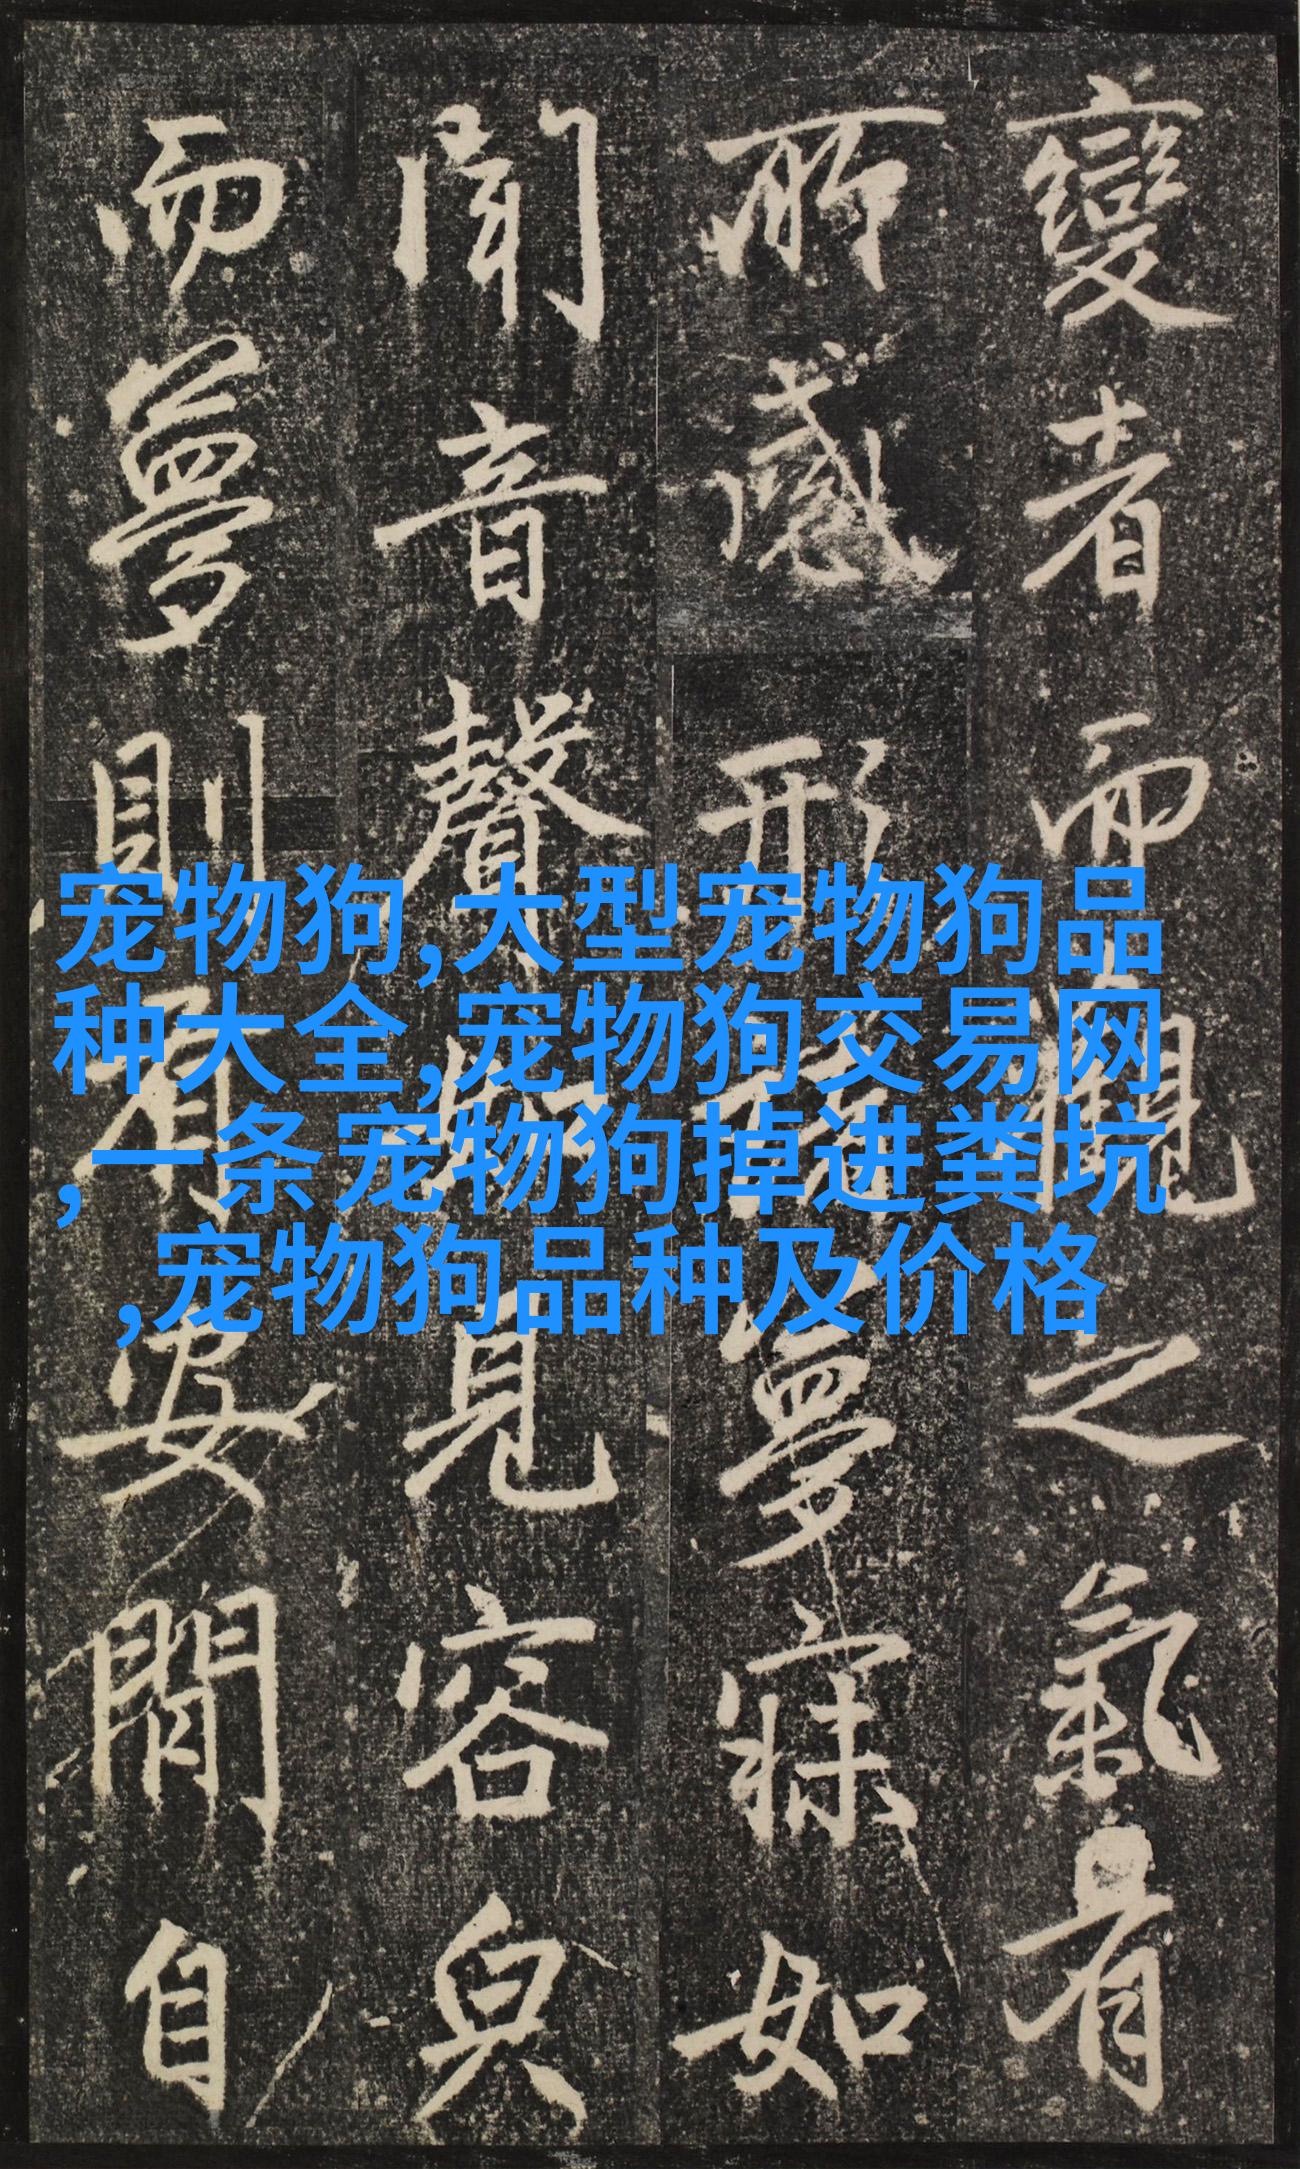 變者而觀之氣有
所感形接夢寐如
聞音聲如見容皃
而夢則有安閒自
宠物狗,大型宠物狗品
种大全,宠物狗交易网
,一条宠物狗掉进粪坑
,宠物狗品种及价格